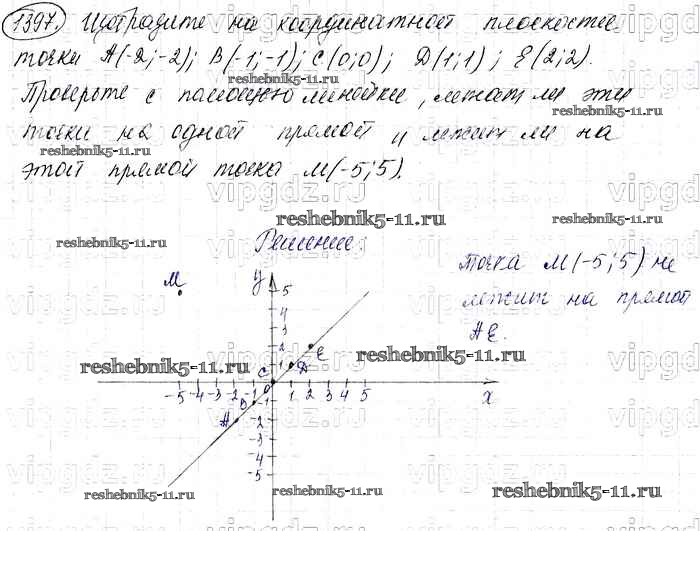 1397. Изобразите на координатной плоскости
точки A(-2;-2); B(-1;-1); C(0;0); D(1;1); E(2;2).
reshebnik5-11.ru
Проверьте с помощью линейки, лежат ли эти
reshebnik5-11.ru
точки на одной прямой и лежит ли на
reshebnik5-11.ru
этой прямой точка M(-5;5).
vipgdz.ru
reshebnik5-11.ru
reshebnik5-11.ru
reshebnik5-11.ru
Решение:
точка M(-5;5) не
лежит на прямой
AE.
M
y
5
4
3
2
1
E
D
C
0
reshebnik5-11.ru
reshebnik5-11.ru
-5 -4 -3 -2 -1 1 2 3 4 5
x
B
A
-1
-2
-3
-4
-5
reshebnik5-11.ru
reshebnik5-11.ru
reshebnik5-11.ru